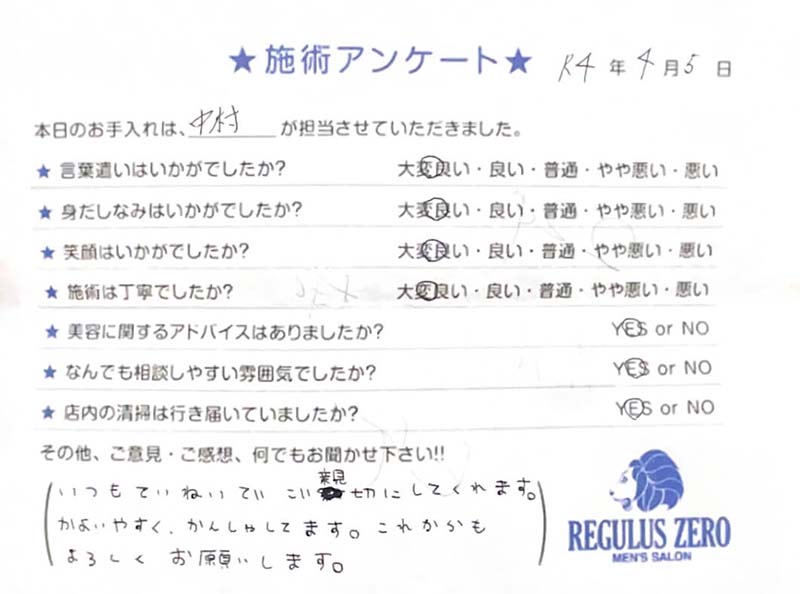 ★施術アンケート★ R4年4月5日
本日のお手入れは、中村が担当させていただきました。
★ 言葉遣いはいかがでしたか? 大変良い・良い・普通・やや悪い・悪い
★ 身だしなみはいかがでしたか? 大変良い・良い・普通・やや悪い・悪い
★ 笑顔はいかがでしたか? 大変良い・良い・普通・やや悪い・悪い
★ 施術は丁寧でしたか? 大変良い・良い・普通・やや悪い・悪い
★ 美容に関するアドバイスはありましたか? YES or NO
★ なんでも相談しやすい雰囲気でしたか? YES or NO
★ 店内の清掃は行き届いていましたか? YES or NO
その他、ご意見・ご感想、何でもお聞かせ下さい!!
いつもていねいで 親切にしてくれます。
かよいやすく、かんしゃしてます。これからも
よろしく お願いします。
REGULUS ZERO
MEN'S SALON